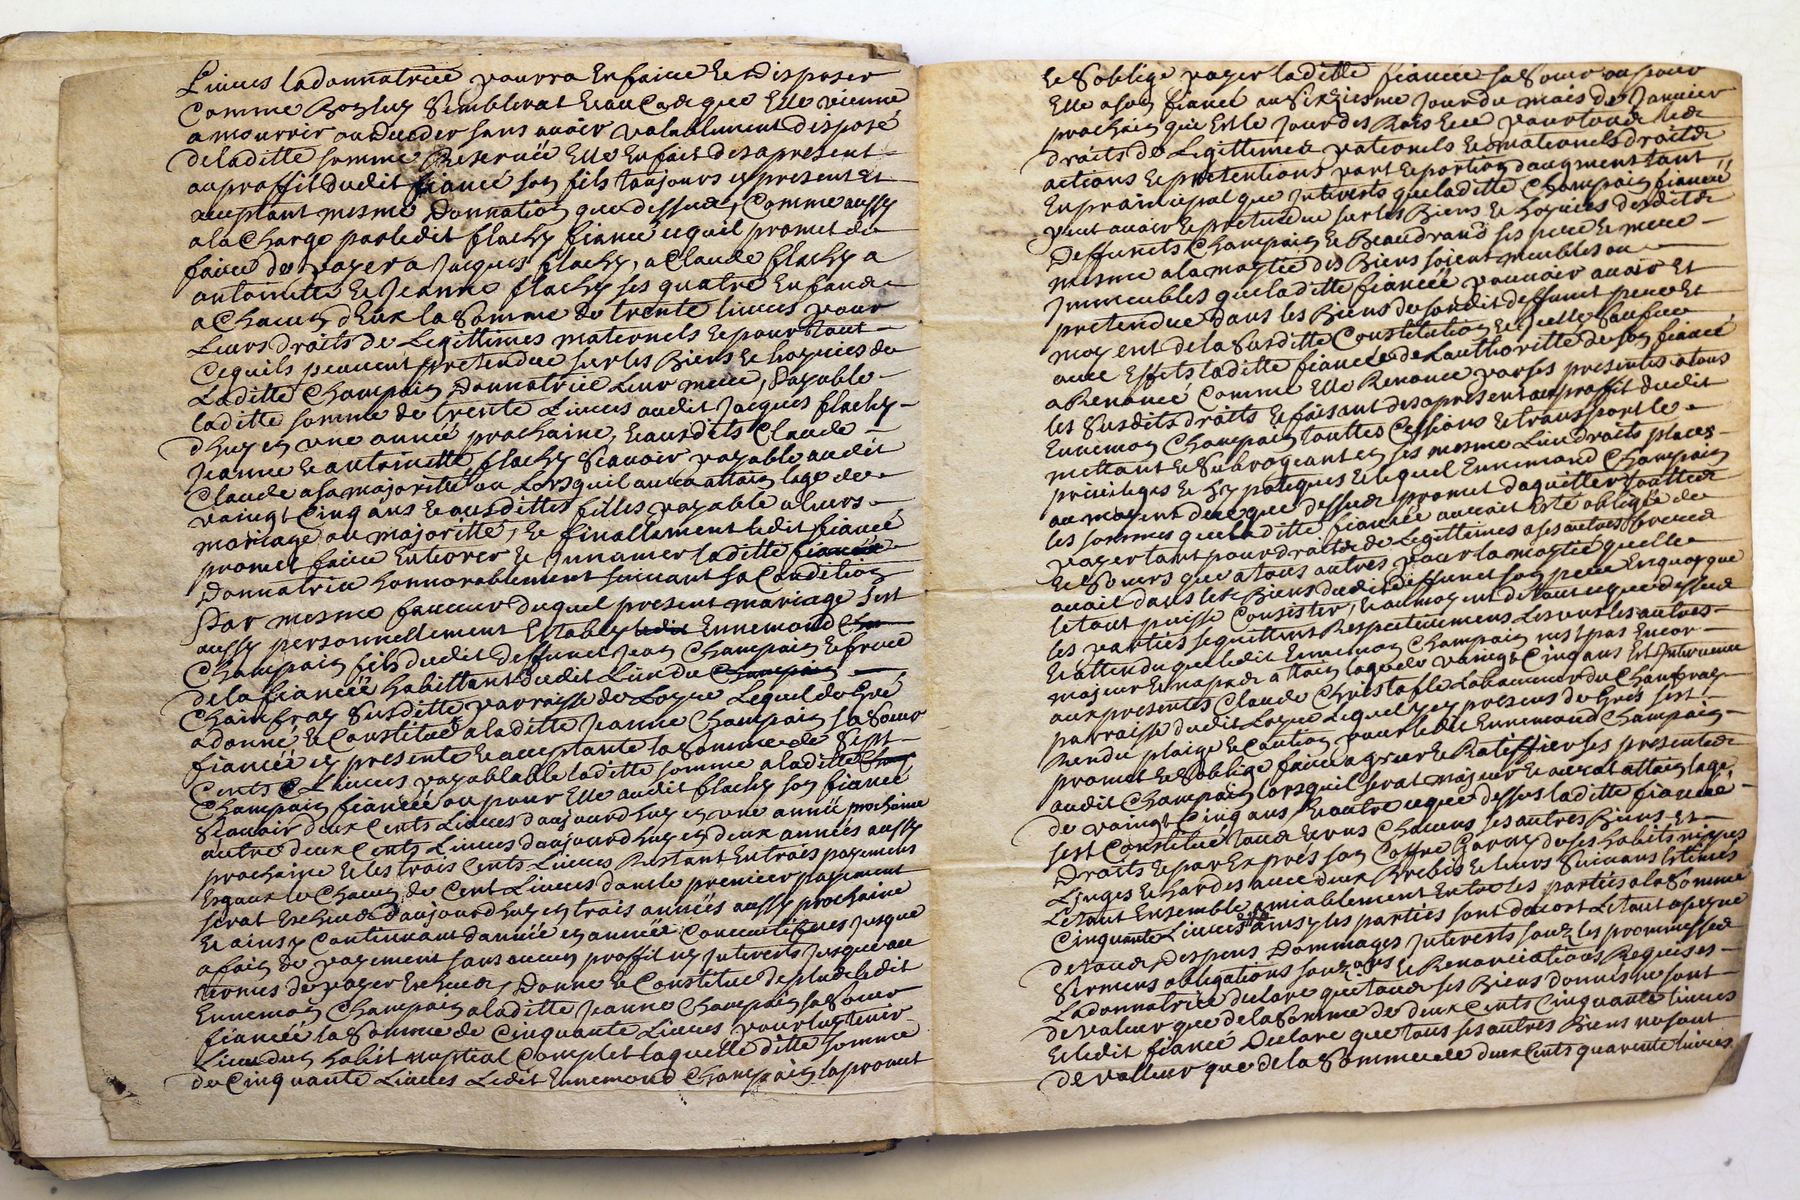 Livres ladonnatrice pourra En faire Et Disposer
Comme Bon luy Semblerat Et au Cas que Elle vienne
a mourrir ou deceder sans avoir valablement disposé
de laditte somme Reservée Elle En fait des apresent
au proffit dudit fiancé son fils toujours icy present Et
acceptant mesme Donnation que dessus, Comme aussy
a la Charge par ledit flachy fiancé ce quil promet de
faire de payer a Jacques flachy, a Claude flachy a
antoinette Et Jeanne flachy ses quatre Enfands
a Chacun d'Eux la Somme de trente livres pour
Leurs droits de Legittimes maternels Et pour tout
Ce quils peuvent pretendre sur les Biens Et hoyries de
Laditte Champain Donnatrice Leur mere, Payable
laditte somme de trente Livres audit Jacques flachy
d'huy en une année prochaine, Et ausdits Claude
Jeanne Et antoinette flachy Scavoir payable audit
Claude a sa majorité ou Lors quil aura attain lage de
vaingt Cinq ans Et ausdittes filles payable a leurs
mariage ou majoritté, Et finallement ledit fiancé
promet faire Enterrer Et Innumer laditte fiancée
Donnatrice honnorablement suivant sa Condition
Par mesme faveur duquel present mariage Sest
aussy personnellement Estably ledit Ennemond Cha
Champain fils dudit deffunct Jean Champain Et frere
de la fiancée habittant dudit Lieu du Champain
Chainfray Susditte parroisse de Loyre Lequel de Gré
a donné Et Constitué a laditte Jeanne Champain sa Sœur
fiancée icy presente Et acceptante la Somme de Sept
Cents Livres payablable laditte somme a laditte Cham
Champain fiancée ou pour Elle audit flachy son fiancé
Scavoir deux Cents Livres daujourdhuy en une année prochaine
autre deux Cents Livres daujourdhuy en deux années aussy
prochaine Et les trois Cents Livres Restant En trois payement
Esgaux de Chacun de Cent Livres dont le premier payement
serat Escheu daujourdhuy en trois années aussy prochaine
Et ainsy Continuant dannée en année Consecutives jusque
a fain de payement sans aucun proffit ny Interests jusque au
termes de payer Escheus, Donne Et Constitue de plus ledit
Ennemon Champain a laditte Jeanne Champain sa Sœur
fiancée la Somme de Cinquante Livres pour luy tenir
Lieu dun habit nuptial Complet laquelle ditte somme
de Cinquante Livres Ledit Ennemond Champain la promet
Et S'oblige payer laditte fiancée sa Sœur ou pour
Elle a son fiancé au Sixiesme Jour du mais de Janvier
prochain qui Est le Jour des Rois Et ce pour tous Les
droits de Legittimes paternels Et maternels droits
actions Et pretentions part Et portion daugment tant
En praincipal que Interests que laditte Champain fiancée
peut avoir Et pretendre sur les Biens Et hoyries desdits
Deffuncts Champain Et Beaudrand ses pere Et mere
mesme a la moytie des Biens soient meubles ou
Immeubles que laditte fiancée pouvoir avoir Et
pretendre dans les Biens du susdit deffunct pere Et
moyent de la Susditte Constitution Et Icelle
avec Effets laditte fiancée de Lauthoritté de son fiancé
a Renoncé Comme Elle Renonce par ses presentes a tous
les Susdits droits Et faisant des apresent au proffit dudit
Ennemon Champain touttes Cessions Et transport le
mettant Et Subrogeant en ses mesme Lieu droits places
privileges Et hypoteques Et lequel Ennemond Champain
au moyent de ce que dessus promet daquitter touttes
les sommes que laditte fiancée auroit Esté obligée de
payer tant pour droits de Legittimes a ses autres freres
Et Sœurs que a tous autres pour la moytié quelle
avait dans les Biens dudit deffunct son pere En quoy que
le tout puisse Consister, Et au moyent de tout ce que dessus
les parties sequittent Respectivement Les uns les autres
Et attendu que ledit Ennemon Champain nest pas Encor
majeur Et na pas attain lage de vaingt Cinq ans Est Intervenu
aux presentes Claude Christofle Laboureur du Chanfray
parroisse dudit Loyre Lequel icy presens de Gres sest
Rendu plaige Et Caution pour ledit Ennemond Champain
promet Et S'oblige faire agreer Et Ratiffier les presentes
audit Champain lors quil serat majeur Et aurat attain lage
de vaingt Cinq ans Et outre ce que dessus laditte fiancée
sest Constitué tous Et uns Chacuns ses autres Biens Et
Droits Et par Exprés son Coffre Garny de ses habits nippes
Linges Et hardes avec deux Brebis Et leurs Suivans Estimés
Le tout Ensemble amiablement Entre les parties a la Somme
Cinquante Livres ainsy les parties sont dacort Le tout a peyne
de tous Despens Dommages Interests sous les prommesses
Sermens obligations Et Renonciations Requises
Ladonnatrice declare que tous ses Biens donnés ne sont
de valeur que de la Somme de deux Cents Cinquante livres
Et ledit fiancé Declare que tous ses autres Biens ne sont
de valleur que de la Somme de deux Cents quarente livres